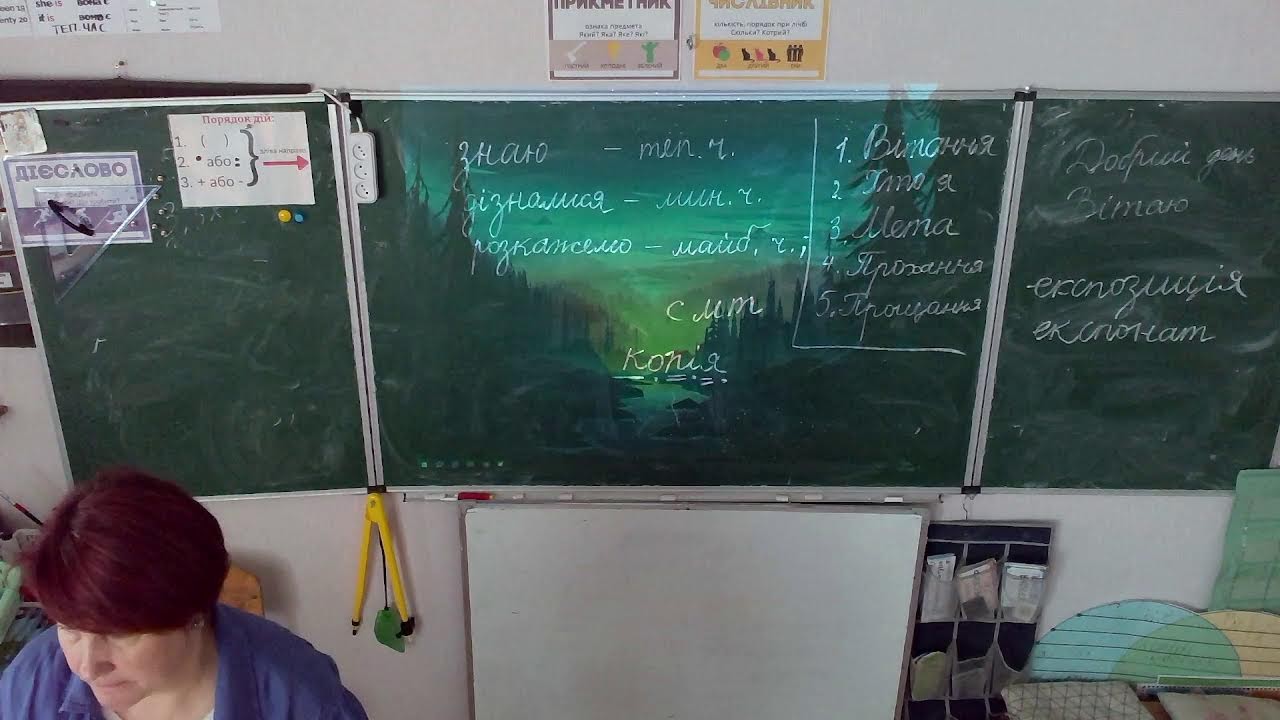 she is вона є
it is воно є
ТЕП. ЧАС
ПРИКМЕТНИК
ознака предмета
Який? Яка? Яке? Які?
ЧИСЛІВНИК
кількість, порядок при лічбі
Скільки? Котрий?
два другий три
Порядок дій:
1. ( )
2. • або :
3. + або -
зліва направо
ДІЄСЛОВО
знаю – теп. ч.
дізналися – мин. ч.
розкажемо – майб. ч.;
смт
копія
1. Вітання
2 Хто я
3. Мета
4. Прохання
5. Прощання
Добрий день
Вітаю
експозиція
експонат